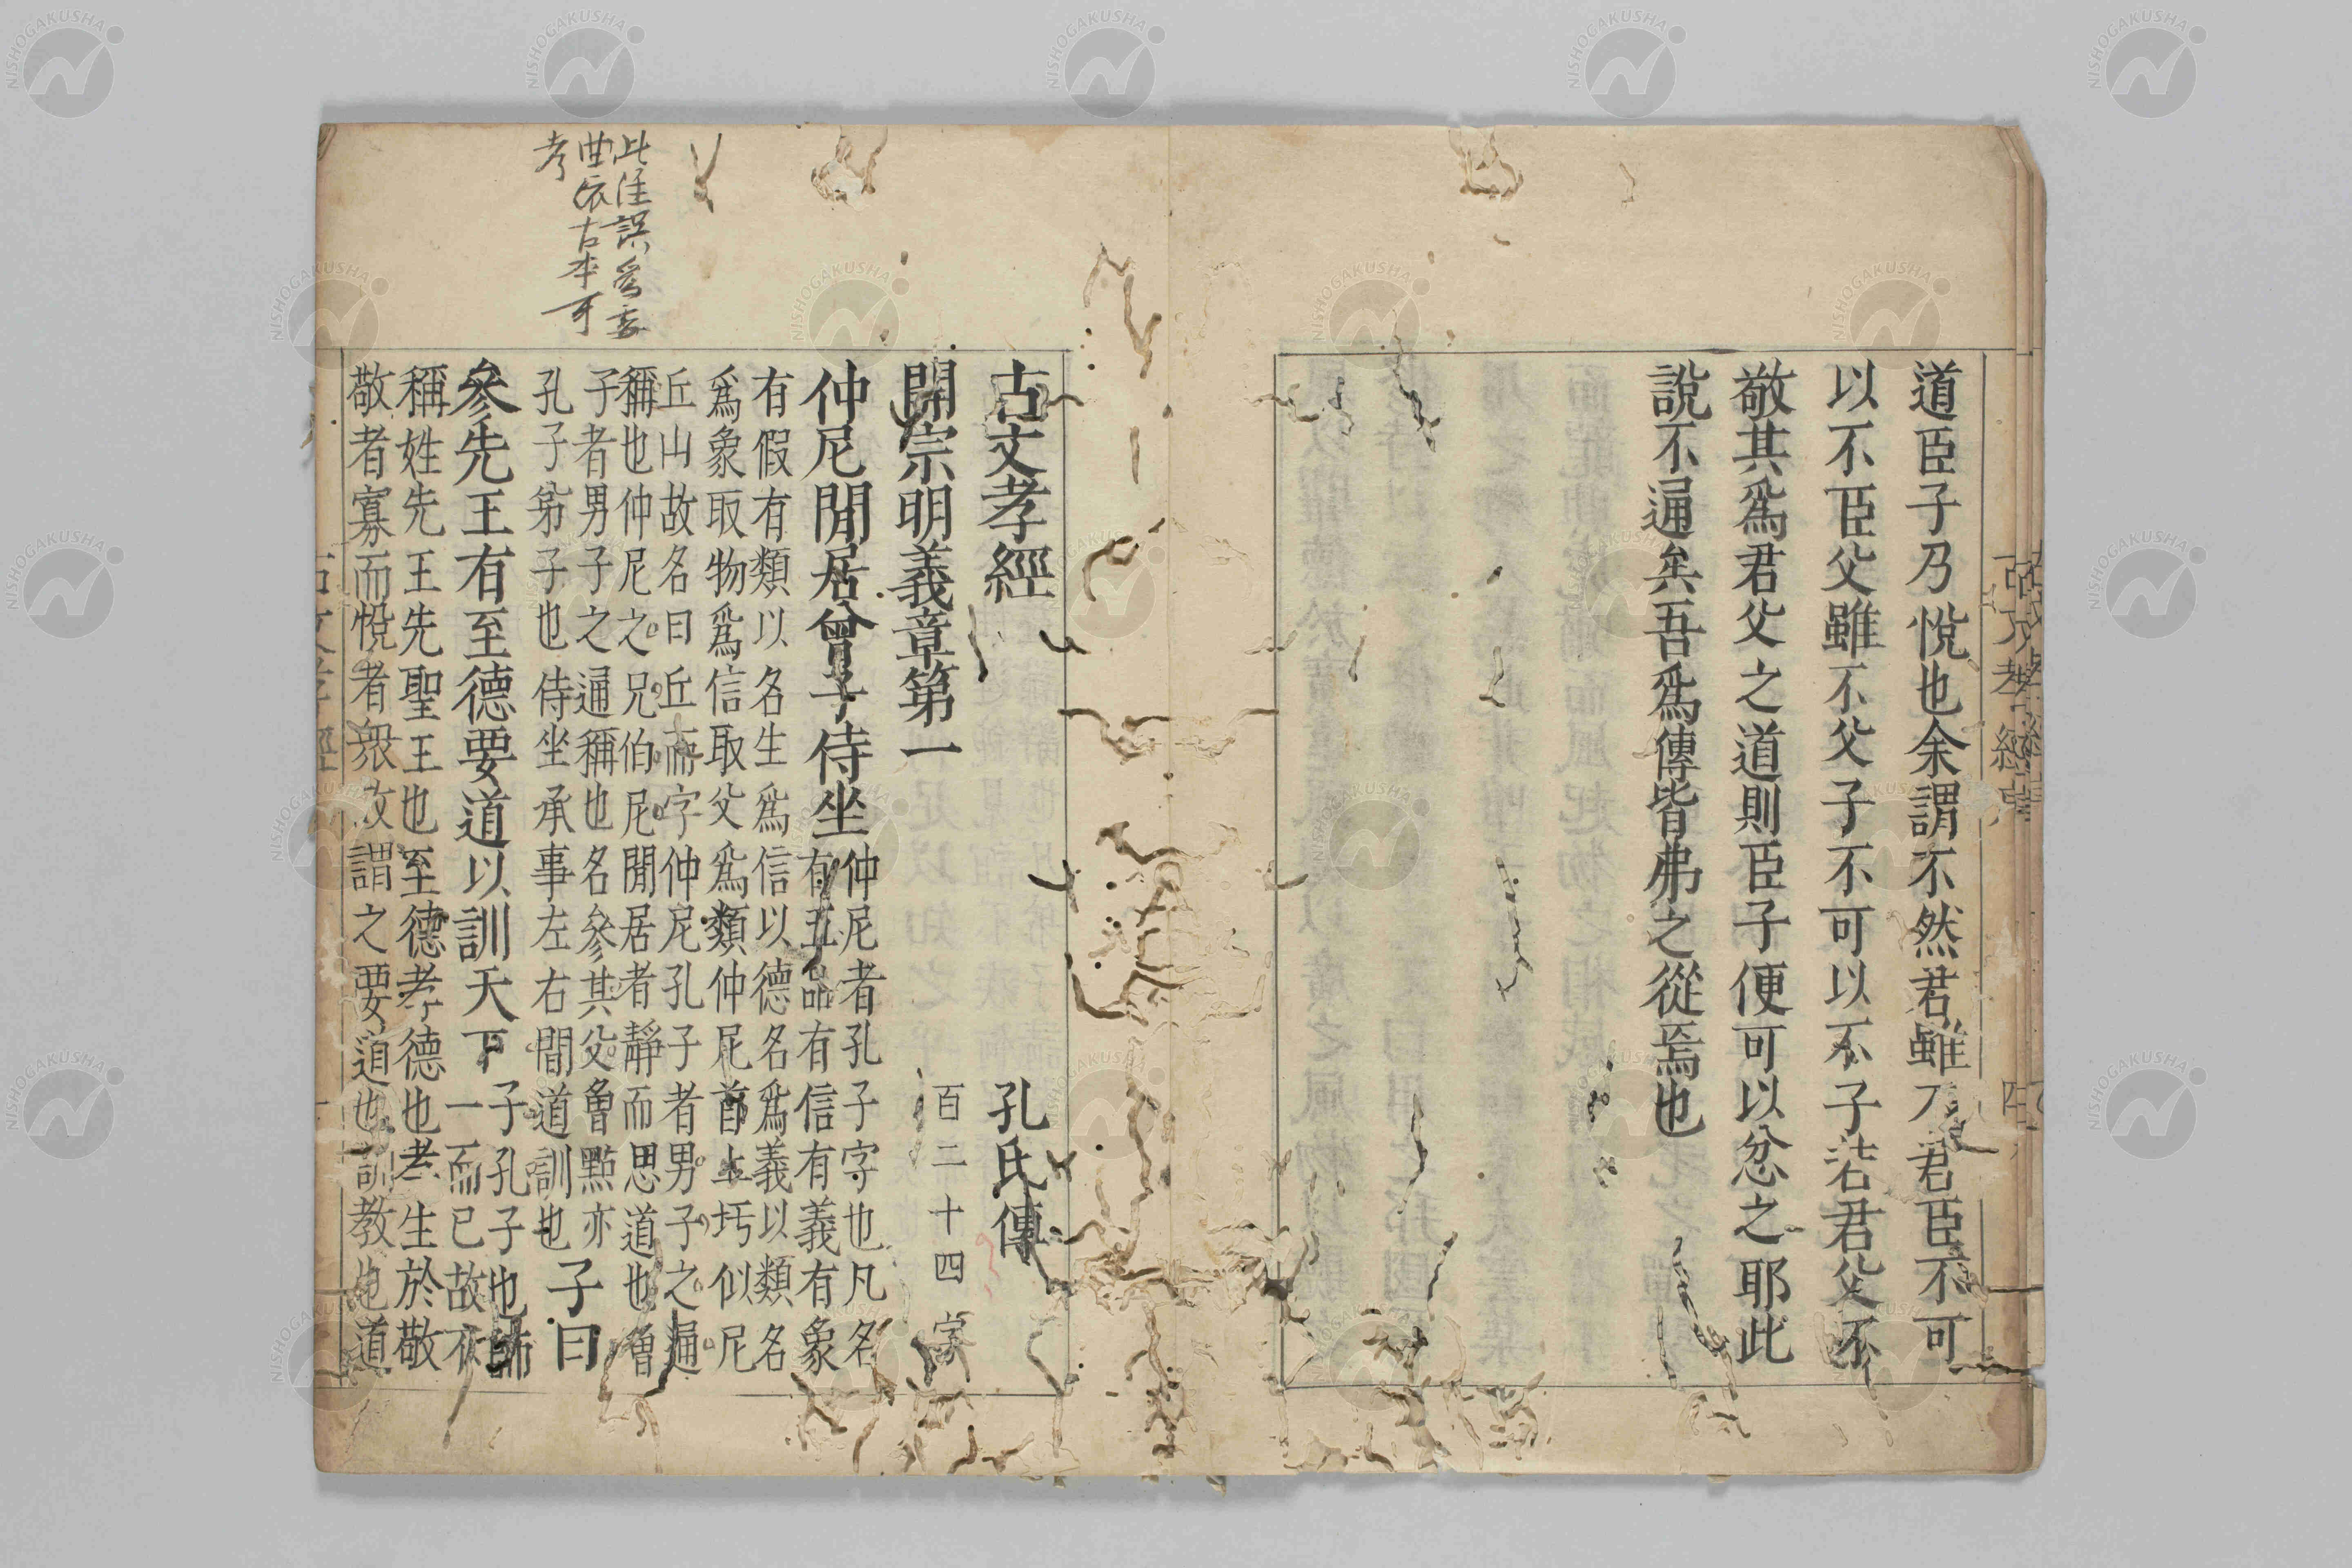 道臣子乃悅也余謂不然君雖不君臣不可
以不臣父雖不父子不可以不子若君父不
敬其爲君父之道則臣子便可以忿之耶此
說不通矣吾爲傳皆弗之從焉也
古文孝經 孔氏傳
開宗明義章第一 百二十四字
仲尼閒居曾子侍坐
仲尼者孔子字也凡名
有五品有信有義有象
有假有類以名生爲信以德名爲義以類名
爲象取物爲信取父爲類仲尼首上圬似尼
丘山故名曰丘而字仲尼孔子者男子之通
稱也仲尼之兄伯尼閒居者靜而思道也曾
子者男子之通稱也名參其父曾點亦
孔子弟子也侍坐承事左右間道訓也
子曰
參先王有至德要道以訓天下
子孔子也師
一而已故不
稱姓先王先聖王也至德孝德也孝生於敬
敬者寡而悅者衆故謂之要道也訓教也道
此注誤爲
曲依古本可
考
NISHOGAKUSHA